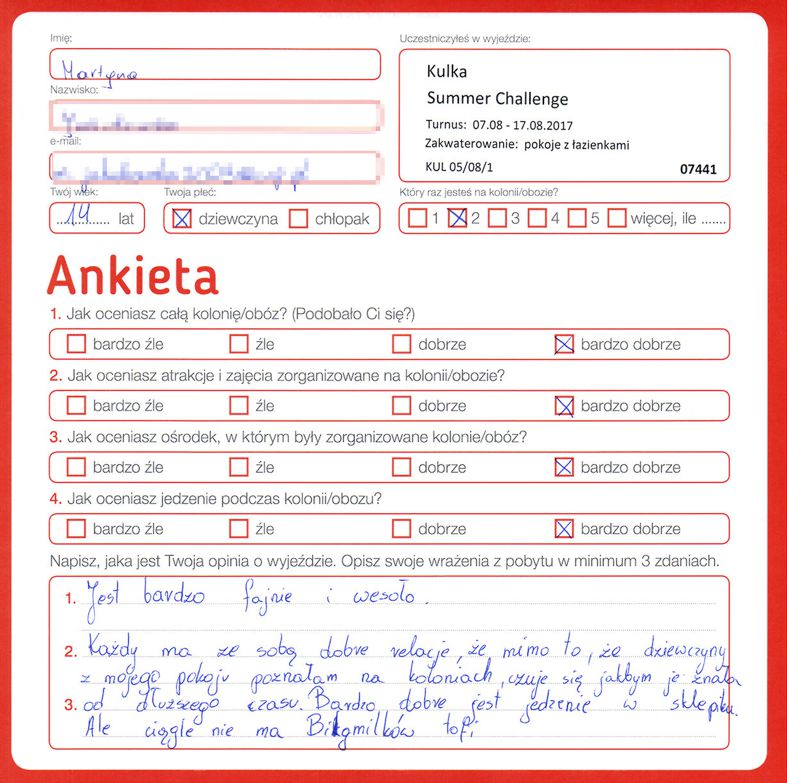 Imię:
Uczestniczyłeś w wyjeździe:
Martyna
Kulka
Nazwisko:
Summer Challenge
Turnus: 07.08 - 17.08.2017
e-mail:
Zakwaterowanie: pokoje z łazienkami
KUL 05/08/1 07441
Twój wiek: Twoja płeć: Który raz jesteś na kolonii/obozie?
14 lat dziewczyna chłopak 1 2 3 4 5 więcej, ile .......
Ankieta
1. Jak oceniasz całą kolonię/obóz? (Podobało Ci się?)
bardzo źle źle dobrze bardzo dobrze
2. Jak oceniasz atrakcje i zajęcia zorganizowane na kolonii/obozie?
bardzo źle źle dobrze bardzo dobrze
3. Jak oceniasz ośrodek, w którym były zorganizowane kolonie/obóz?
bardzo źle źle dobrze bardzo dobrze
4. Jak oceniasz jedzenie podczas kolonii/obozu?
bardzo źle źle dobrze bardzo dobrze
Napisz, jaka jest Twoja opinia o wyjeździe. Opisz swoje wrażenia z pobytu w minimum 3 zdaniach.
1. Jest bardzo fajnie i wesoło.
2. Każdy ma ze sobą dobre relacje, że mimo to, że dziewczyny
z mojego pokoju poznałam na koloniach, czuje się jakbym je znała
3. od dłuższego czasu. Bardzo dobre jest jedzenie w sklepiku.
Ale ciągle nie ma